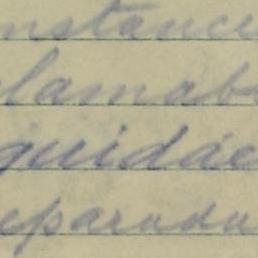 nstanci
lamab
guidac
eparada